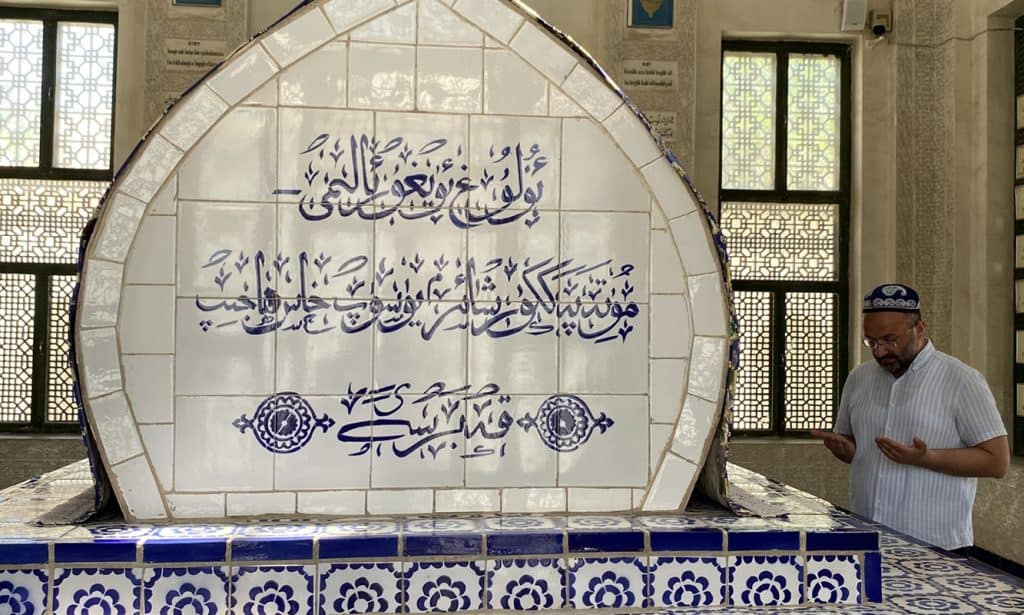 ئۇلۇغ ئۇيغۇر ئالىمى-
مۇتەپەككۇر شائىر يۈسۈپ خاس ھاجىپ
قەبرىسى